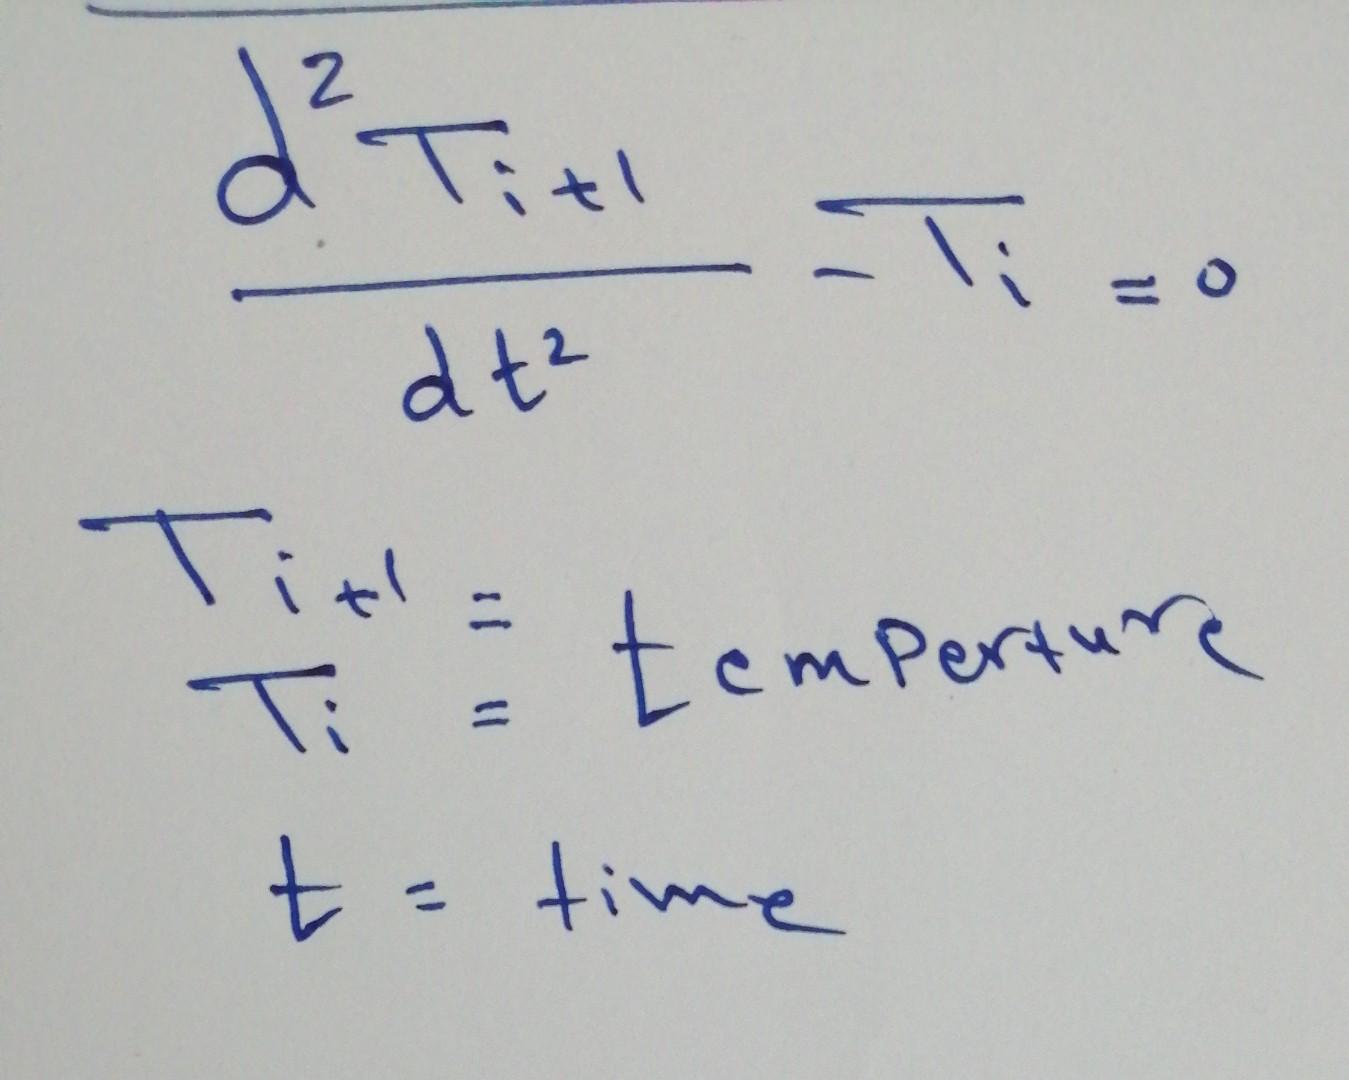 d²T_{i+1}
/ dt² - T_i = 0
T_{i+1} =
T_i = temperture
t = time